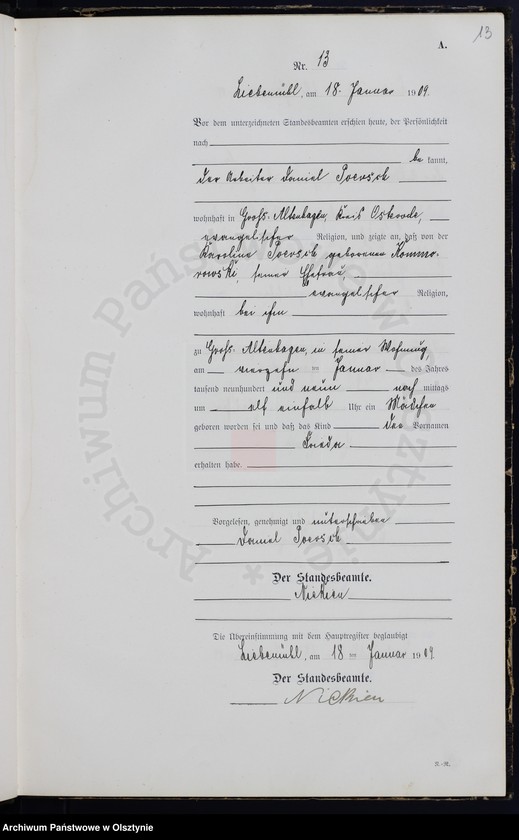 13
A.
Nr. 13
Liebemühl, am 18. Januar 1909.
Vor dem unterzeichneten Standesbeamten erschien heute, der Persönlichkeit
nach
be kannt,
der Arbeiter Daniel Poersch
wohnhaft in Groß-Altenhagen, Kreis Osterode,
evangelischer Religion, und zeigte an, daß von der
Karoline Poersch geborenen Kommo-
rowski, seiner Ehefrau,
evangelischer Religion,
wohnhaft bei ihm
zu Groß-Altenhagen, in seiner Wohnung,
am vierzehn ten Januar des Jahres
tausend neunhundert und neun nach mittags
um elf einhalb Uhr ein Mädchen
geboren worden sei und daß das Kind den Vornamen
Frieda
erhalten habe.
Vorgelesen, genehmigt und unterschrieben
Daniel Poersch
Der Standesbeamte.
Die Übereinstimmung mit dem Hauptregister beglaubigt
Liebemühl, am 18 ten Januar 1909
Der Standesbeamte.
Archiwum Państwowe w Olsztynie
Archiwum Państwowe w Olsztynie